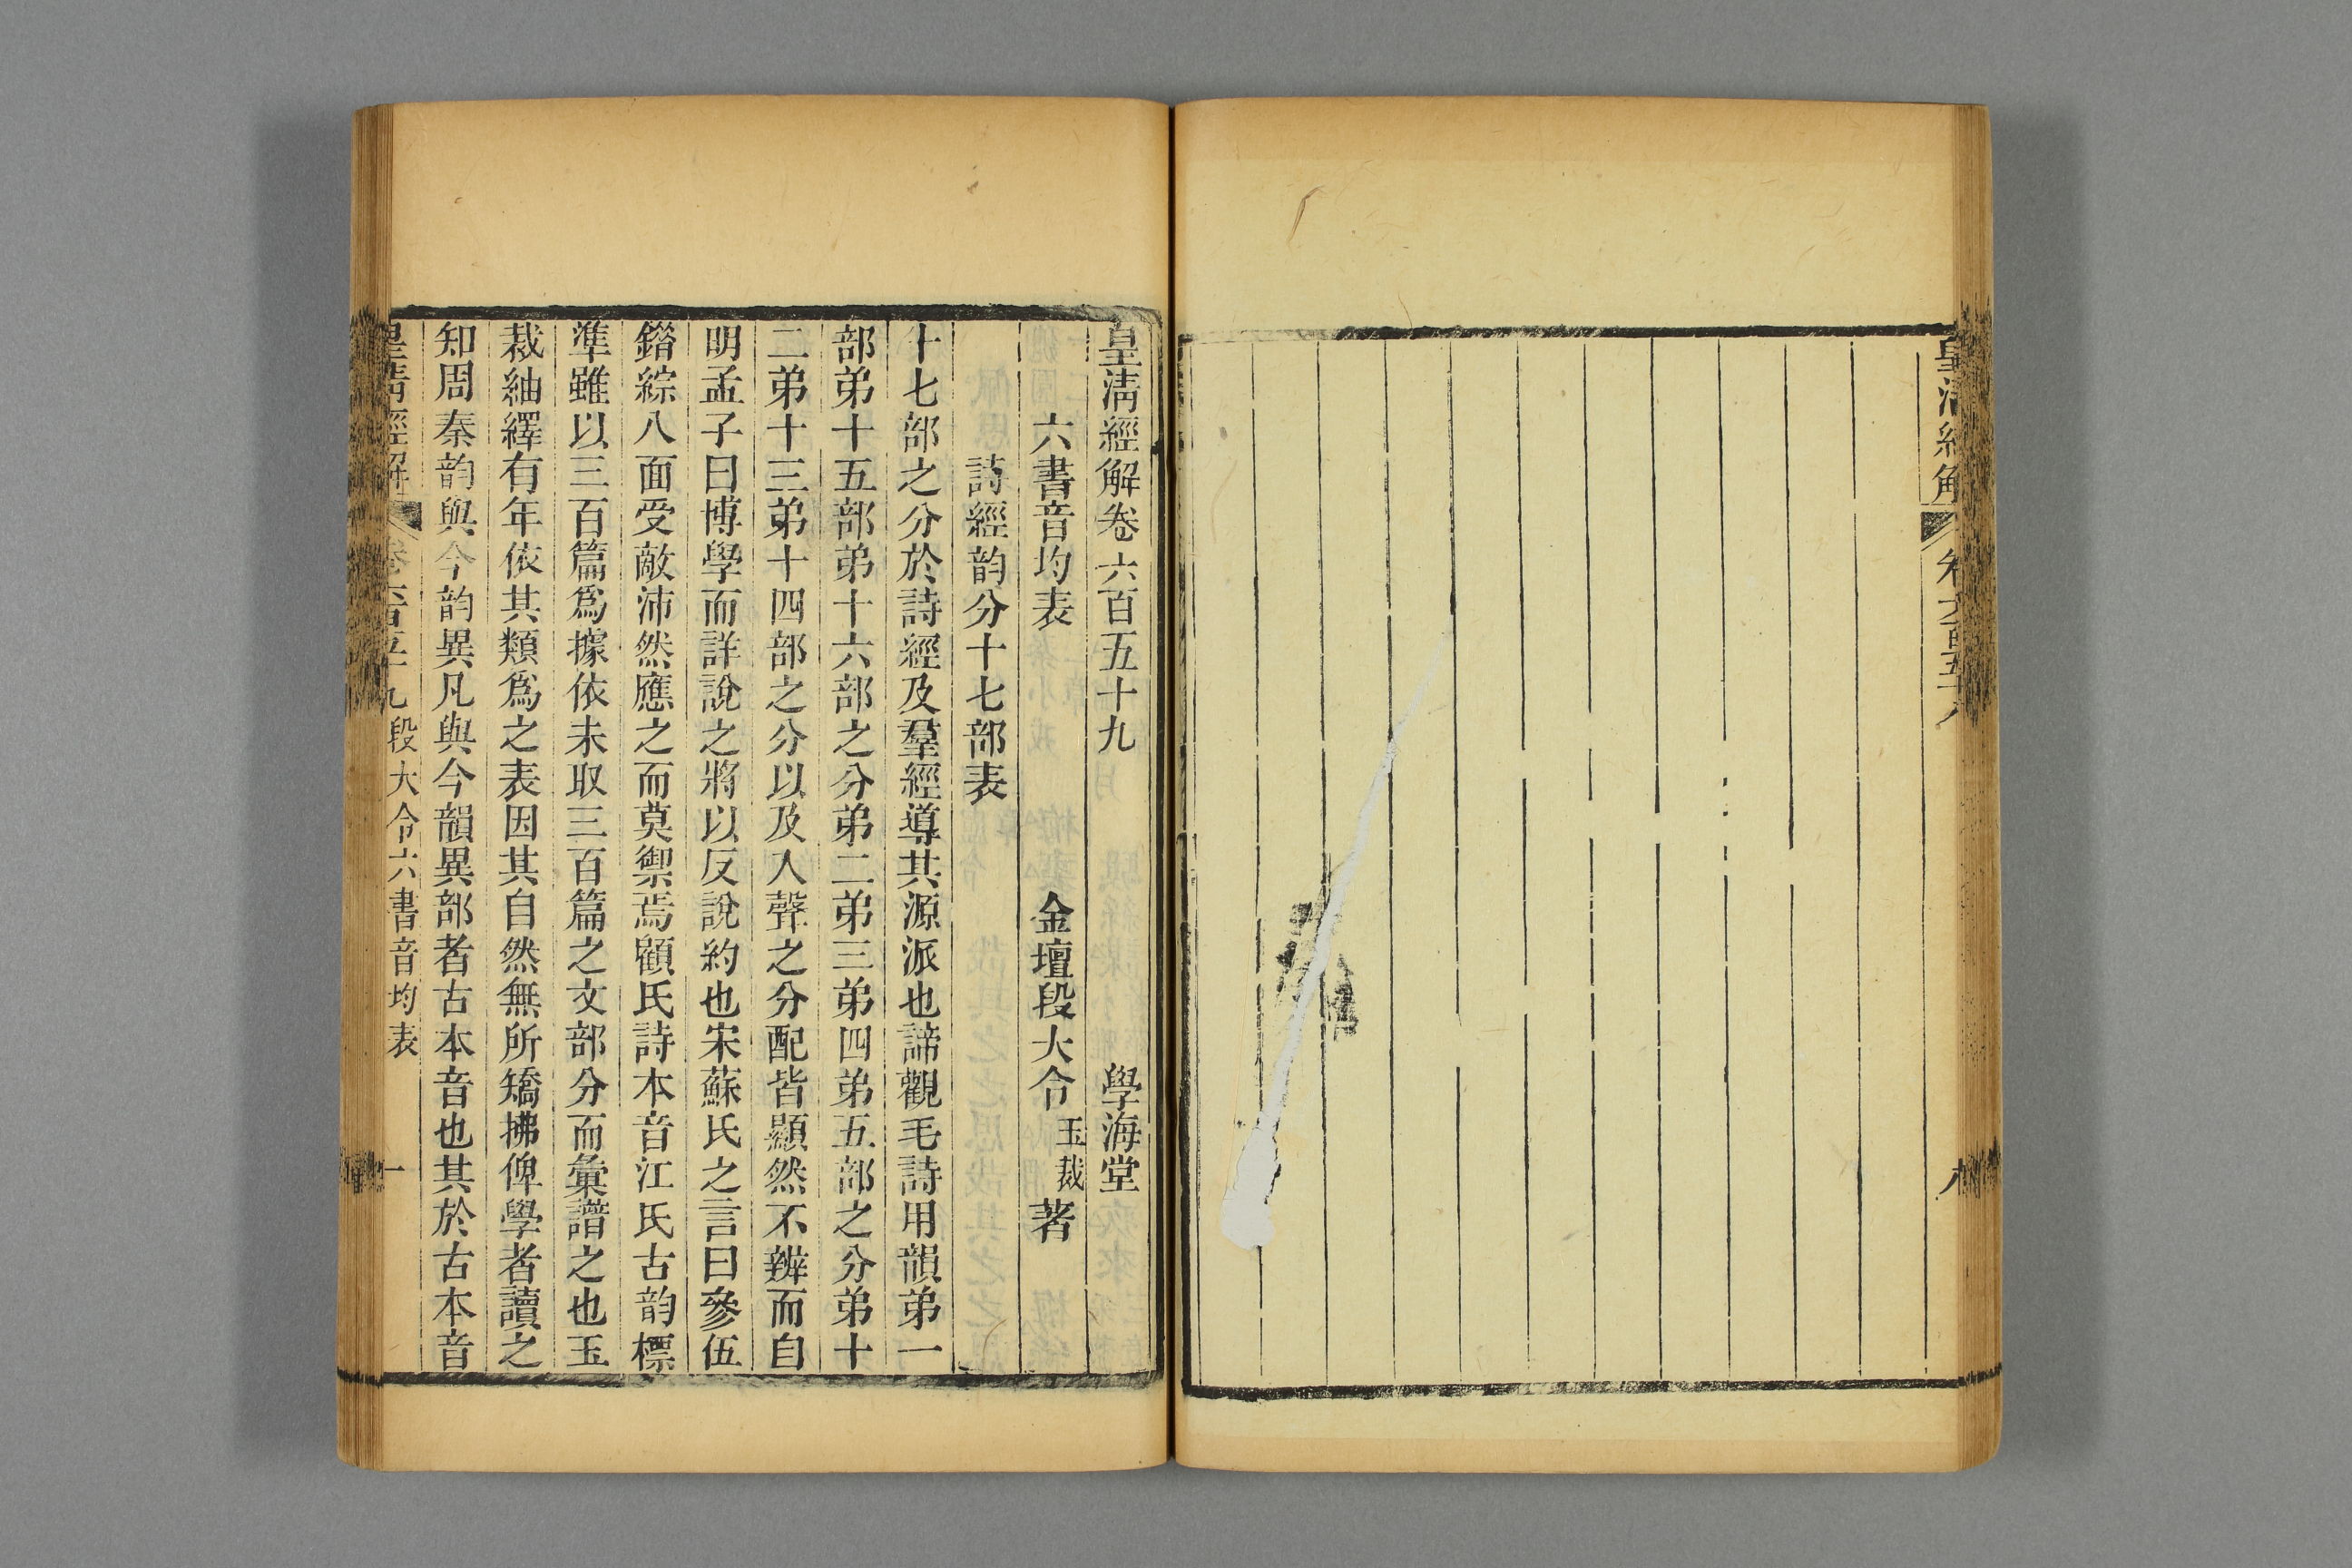 皇清經解
卷六百五十八
八
皇清經解卷六百五十九
學海堂
六書音均表
金壇段大令玉裁著
詩經韵分十七部表
十七部之分於詩經及羣經導其源派也諦觀毛詩用韻弟一
部弟十五部弟十六部之分弟二弟三弟四弟五部之分弟十
二弟十三弟十四部之分以及入聲之分配皆顯然不辨而自
明孟子曰博學而詳說之將以反說約也宋蘇氏之言曰參伍
錯綜八面受敵沛然應之而莫禦焉顧氏詩本音江氏古韵標
準雖以三百篇爲據依未取三百篇之文部分而彙譜之也玉
裁紬繹有年依其類爲之表因其自然無所矯拂俾學者讀之
知周秦韵與今韵異凡與今韻異部者古本音也其於古本音
皇清經解
卷六百五十九
段大令六書音均表
一